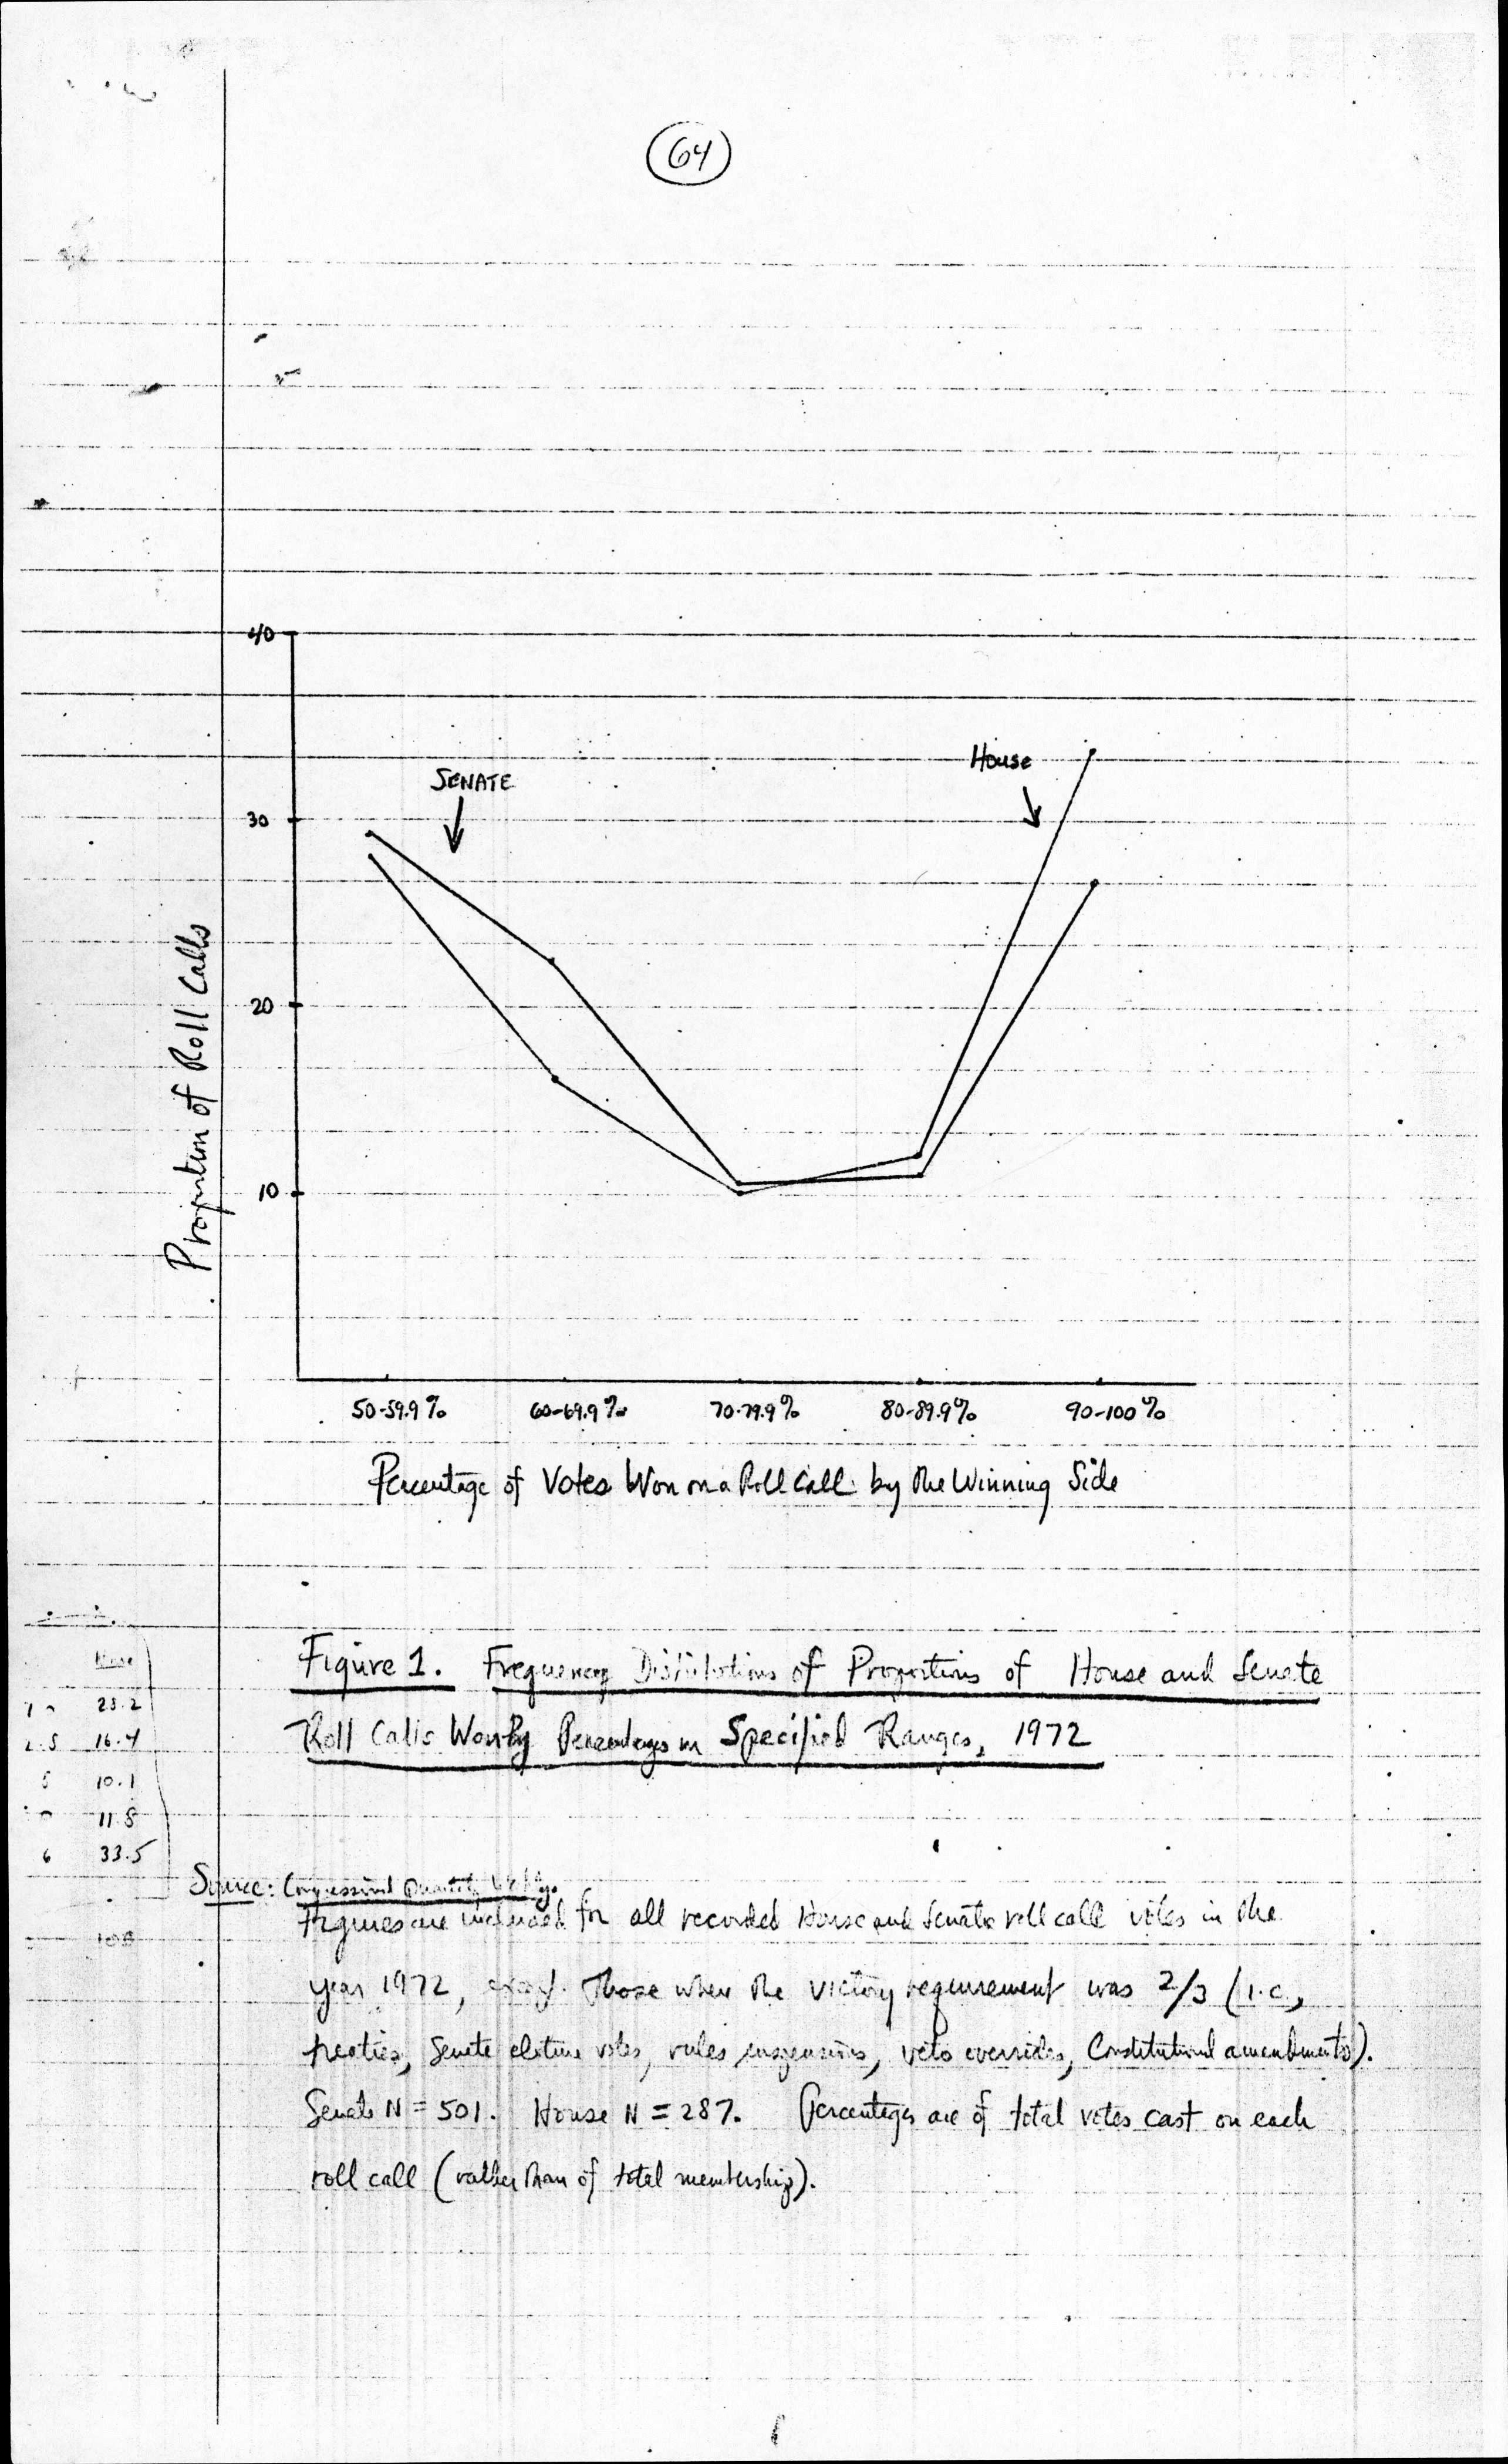 64
40
SENATE
House
30
20
10
Proportion of Roll Calls
50-59.9%
60-69.9%
70-79.9%
80-89.9%
90-100%
Percentage of Votes Won on a Roll Call by the Winning Side
Figure 1. Frequency Distributions of Proportions of House and Senate
Roll Calls Won By Percentages in Specified Ranges, 1972
House
16.4
10.1
11.8
33.5
Source: Congressional Quarterly
Figures are included for all recorded House and Senate roll call votes in the
year 1972, except those when the victory requirement was 2/3 (i.e.,
treaties, Senate cloture votes, rules suspensions, veto overrides, Constitutional amendments).
Senate N = 501. House N = 287. Percentages are of total votes cast on each
roll call (rather than of total membership).